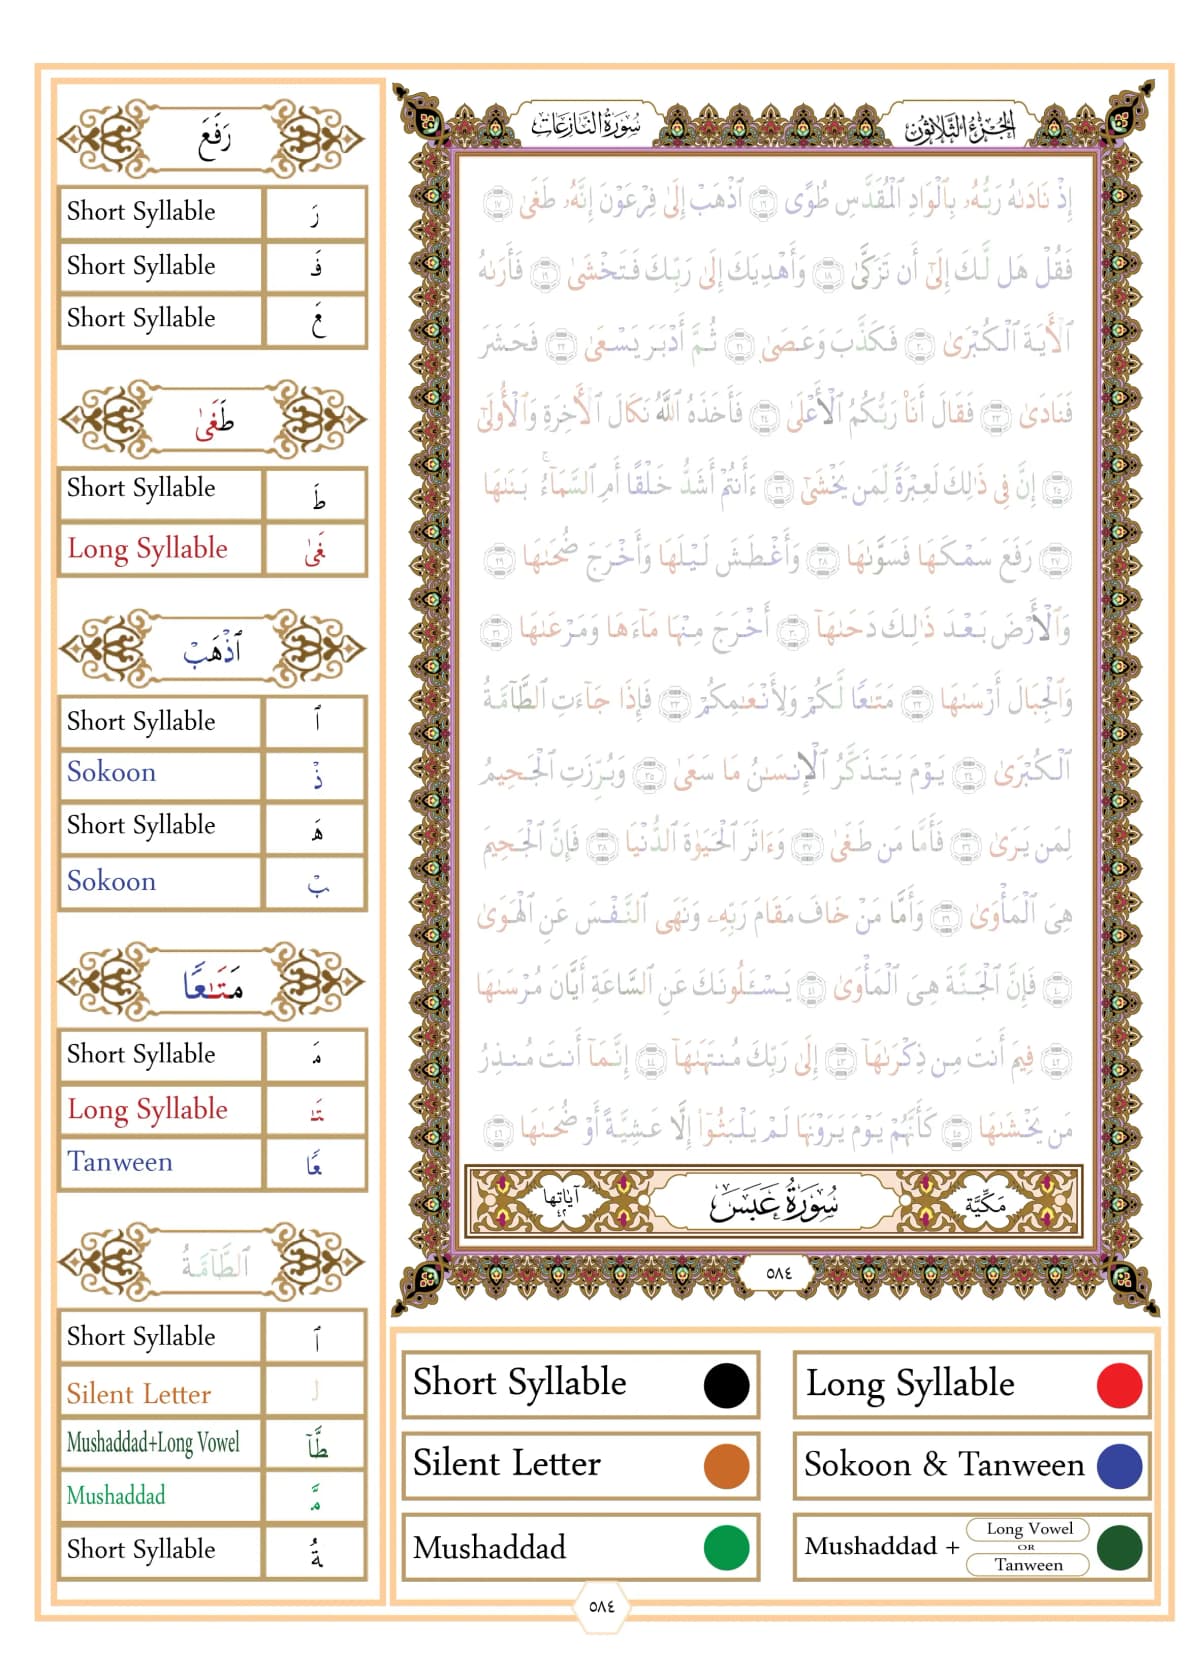 سُورَةُ النَّازِعَات
الجُزْءُ الثَّلَاثُون
رَفَعَ
Short Syllable رَ
Short Syllable فَ
Short Syllable عَ
طَغَىٰ
Short Syllable طَ
Long Syllable غَىٰ
ٱذْهَبْ
Short Syllable ٱ
Sokoon ذْ
Short Syllable هَ
Sokoon بْ
مَتَـٰعًا
Short Syllable مَ
Long Syllable تَـٰ
Tanween عًا
ٱلطَّآمَّةُ
Short Syllable ٱ
Silent Letter ل
Mushaddad+Long Vowel طَّآ
Mushaddad مَّ
Short Syllable ةُ
إِذْ نَادَىٰهُ رَبُّهُۥ بِٱلْوَادِ ٱلْمُقَدَّسِ طُوًى ١٦ ٱذْهَبْ إِلَىٰ فِرْعَوْنَ إِنَّهُۥ طَغَىٰ ١٧
فَقُلْ هَل لَّكَ إِلَىٰٓ أَن تَزَكَّىٰ ١٨ وَأَهْدِيَكَ إِلَىٰ رَبِّكَ فَتَخْشَىٰ ١٩ فَأَرَىٰهُ
ٱلْأَيَةَ ٱلْكُبْرَىٰ ٢٠ فَكَذَّبَ وَعَصَىٰ ٢١ ثُمَّ أَدْبَرَ يَسْعَىٰ ٢٢ فَحَشَرَ
فَنَادَىٰ ٢٣ فَقَالَ أَنَا۠ رَبُّكُمُ ٱلْأَعْلَىٰ ٢٤ فَأَخَذَهُ ٱللَّهُ نَكَالَ ٱلْأَخِرَةِ وَٱلْأُولَىٰٓ
٢٥ إِنَّ فِى ذَٰلِكَ لَعِبْرَةً لِّمَن يَخْشَىٰٓ ٢٦ ءَأَنتُمْ أَشَدُّ خَلْقًا أَمِ ٱلسَّمَآءُ ۚ بَنَىٰهَا
٢٧ رَفَعَ سَمْكَهَا فَسَوَّىٰهَا ٢٨ وَأَغْطَشَ لَيْلَهَا وَأَخْرَجَ ضُحَىٰهَا ٢٩
وَٱلْأَرْضَ بَعْدَ ذَٰلِكَ دَحَىٰهَآ ٣٠ أَخْرَجَ مِنْهَا مَآءَهَا وَمَرْعَىٰهَا ٣١
وَٱلْجِبَالَ أَرْسَىٰهَا ٣٢ مَتَـٰعًا لَّكُمْ وَلِأَنْعَـٰمِكُمْ ٣٣ فَإِذَا جَآءَتِ ٱلطَّآمَّةُ
ٱلْكُبْرَىٰ ٣٤ يَوْمَ يَتَذَكَّرُ ٱلْإِنسَـٰنُ مَا سَعَىٰ ٣٥ وَبُرِّزَتِ ٱلْجَحِيمُ
لِمَن يَرَىٰ ٣٦ فَأَمَّا مَن طَغَىٰ ٣٧ وَءَاثَرَ ٱلْحَيَوٰةَ ٱلدُّنْيَا ٣٨ فَإِنَّ ٱلْجَحِيمَ
هِىَ ٱلْمَأْوَىٰ ٣٩ وَأَمَّا مَنْ خَافَ مَقَامَ رَبِّهِۦ وَنَهَى ٱلنَّفْسَ عَنِ ٱلْهَوَىٰ
٤٠ فَإِنَّ ٱلْجَنَّةَ هِىَ ٱلْمَأْوَىٰ ٤١ يَسْـَٔلُونَكَ عَنِ ٱلسَّاعَةِ أَيَّانَ مُرْسَىٰهَا
٤٢ فِيمَ أَنتَ مِن ذِكْرَىٰهَآ ٤٣ إِلَىٰ رَبِّكَ مُنتَهَىٰهَآ ٤٤ إِنَّمَآ أَنتَ مُنذِرُ
مَن يَخْشَىٰهَا ٤٥ كَأَنَّهُمْ يَوْمَ يَرَوْنَهَا لَمْ يَلْبَثُوٓا۟ إِلَّا عَشِيَّةً أَوْ ضُحَىٰهَا ٤٦
مَكِّيَّة سُورَةُ عَبَسَ آياتها ٤٢
٥٨٤
Short Syllable
Long Syllable
Silent Letter
Sokoon & Tanween
Mushaddad
Mushaddad + Long Vowel OR Tanween
٥٨٤